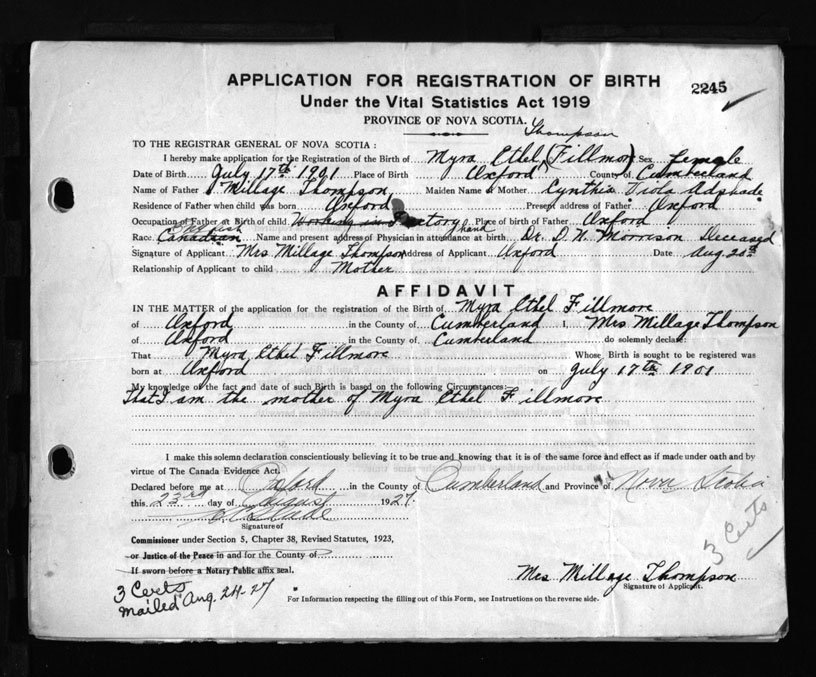 APPLICATION FOR REGISTRATION OF BIRTH
2245
Under the Vital Statistics Act 1919
PROVINCE OF NOVA SCOTIA.
Thompson
TO THE REGISTRAR GENERAL OF NOVA SCOTIA :
I hereby make application for the Registration of the Birth of Myra Ethel (Fillmore) Sex Female
Date of Birth July 17th 1901 Place of Birth Oxford County of Cumberland
Name of Father Millage Thompson Maiden Name of Mother Cynthia Viola Adshade
Residence of Father when child was born Oxford Present address of Father Oxford
Occupation of Father at Birth of child Working in Factory hand Place of birth of Father Oxford
English
Race Canadian Name and present address of Physician in attendance at birth Dr. D. W. Morrison Deceased
Signature of Applicant Mrs Millage Thompson Address of Applicant Oxford Date Aug. 20th
Relationship of Applicant to child Mother
AFFIDAVIT
IN THE MATTER of the application for the registration of the Birth of Myra Ethel Fillmore
of Oxford in the County of Cumberland I, Mrs Millage Thompson
of Oxford in the County of Cumberland do solemnly declare:
That Myra Ethel Fillmore Whose Birth is sought to be registered was
born at Oxford on July 17th 1901
My knowledge of the fact and date of such Birth is based on the following Circumstances:
That I am the mother of Myra Ethel Fillmore
I make this solemn declaration conscientiously believing it to be true and knowing that it is of the same force and effect as if made under oath and by
virtue of The Canada Evidence Act.
Declared before me at Oxford in the County of Cumberland and Province of Nova Scotia
this 23rd day of August 1927.
Signature of
Commissioner under Section 5, Chapter 38, Revised Statutes, 1923,
or Justice of the Peace in and for the County of
If sworn before a Notary Public affix seal.
3 Certs
Mrs Millage Thompson
Signature of Applicant.
3 Certs
mailed Aug. 24-27
For Information respecting the filling out of this Form, see Instructions on the reverse side.